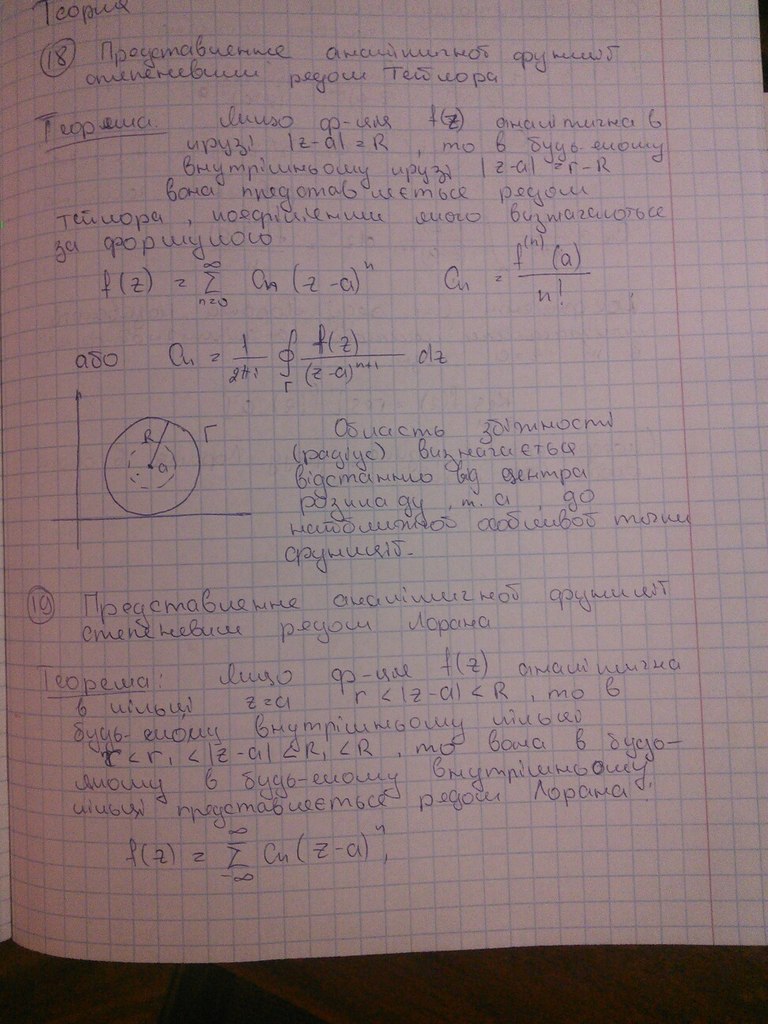 Теория
18 Представление аналітичної функції
степеневим рядом Тейлора
Теорема. Якщо ф-ція f(z) аналітична в
крузі |z-a| = R, то в будь-якому
внутрішньому крузі |z-a| = r - R
вона представляється рядом
Тейлора, коефіцієнти якого визначаються
за формулою
f(z) = ∑_{n=0}^{∞} Cn (z-a)^n Cn = f^{(n)}(a) / n!
або Cn = 1/2πi ∮_Γ f(z)/(z-a)^{n+1} dz
R Γ
a
Область збіжності
(радіус) визначається
відстанню від центра
розкладу, т. a, до
найближчої особливої точки
функції.
19 Представлення аналітичної функції
степеневим рядом Лорана
Теорема: Якщо ф-ція f(z) аналітична
в кільці z=a r < |z-a| < R, то в
будь-якому внутрішньому кільці
r < r₁ < |z-a| < R₁ < R, то вона в будь-
якому в будь-якому внутрішньому
кільці представляється рядом Лорана:
f(z) = ∑_{-∞}^{∞} Cn (z-a)^n,